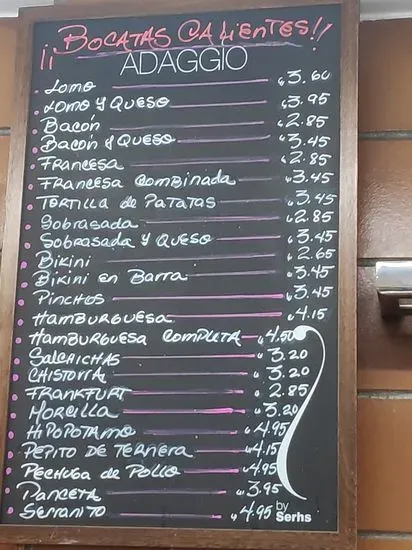 ¡¡Bocatas Calientes!!
ADAGGIO
Lomo €3.60
Lomo y Queso €3.95
Bacón €2.85
Bacón y Queso €3.45
Francesa €2.85
Francesa Combinada €3.45
Tortilla de Patatas €3.45
Sobrasada €2.85
Sobrasada y Queso €3.45
Bikini €2.65
Bikini en Barra €3.45
Pinchos €3.45
Hamburguesa €4.15
Hamburguesa Completa €4.50
Salchichas €3.20
Chistorra €3.20
Frankfurt €2.85
Morcilla €3.20
Hipopotamo €4.95
Pepito de Ternera €4.15
Pechuga de Pollo €4.95
Panceta €3.95
Serranito €4.95
by Serhs